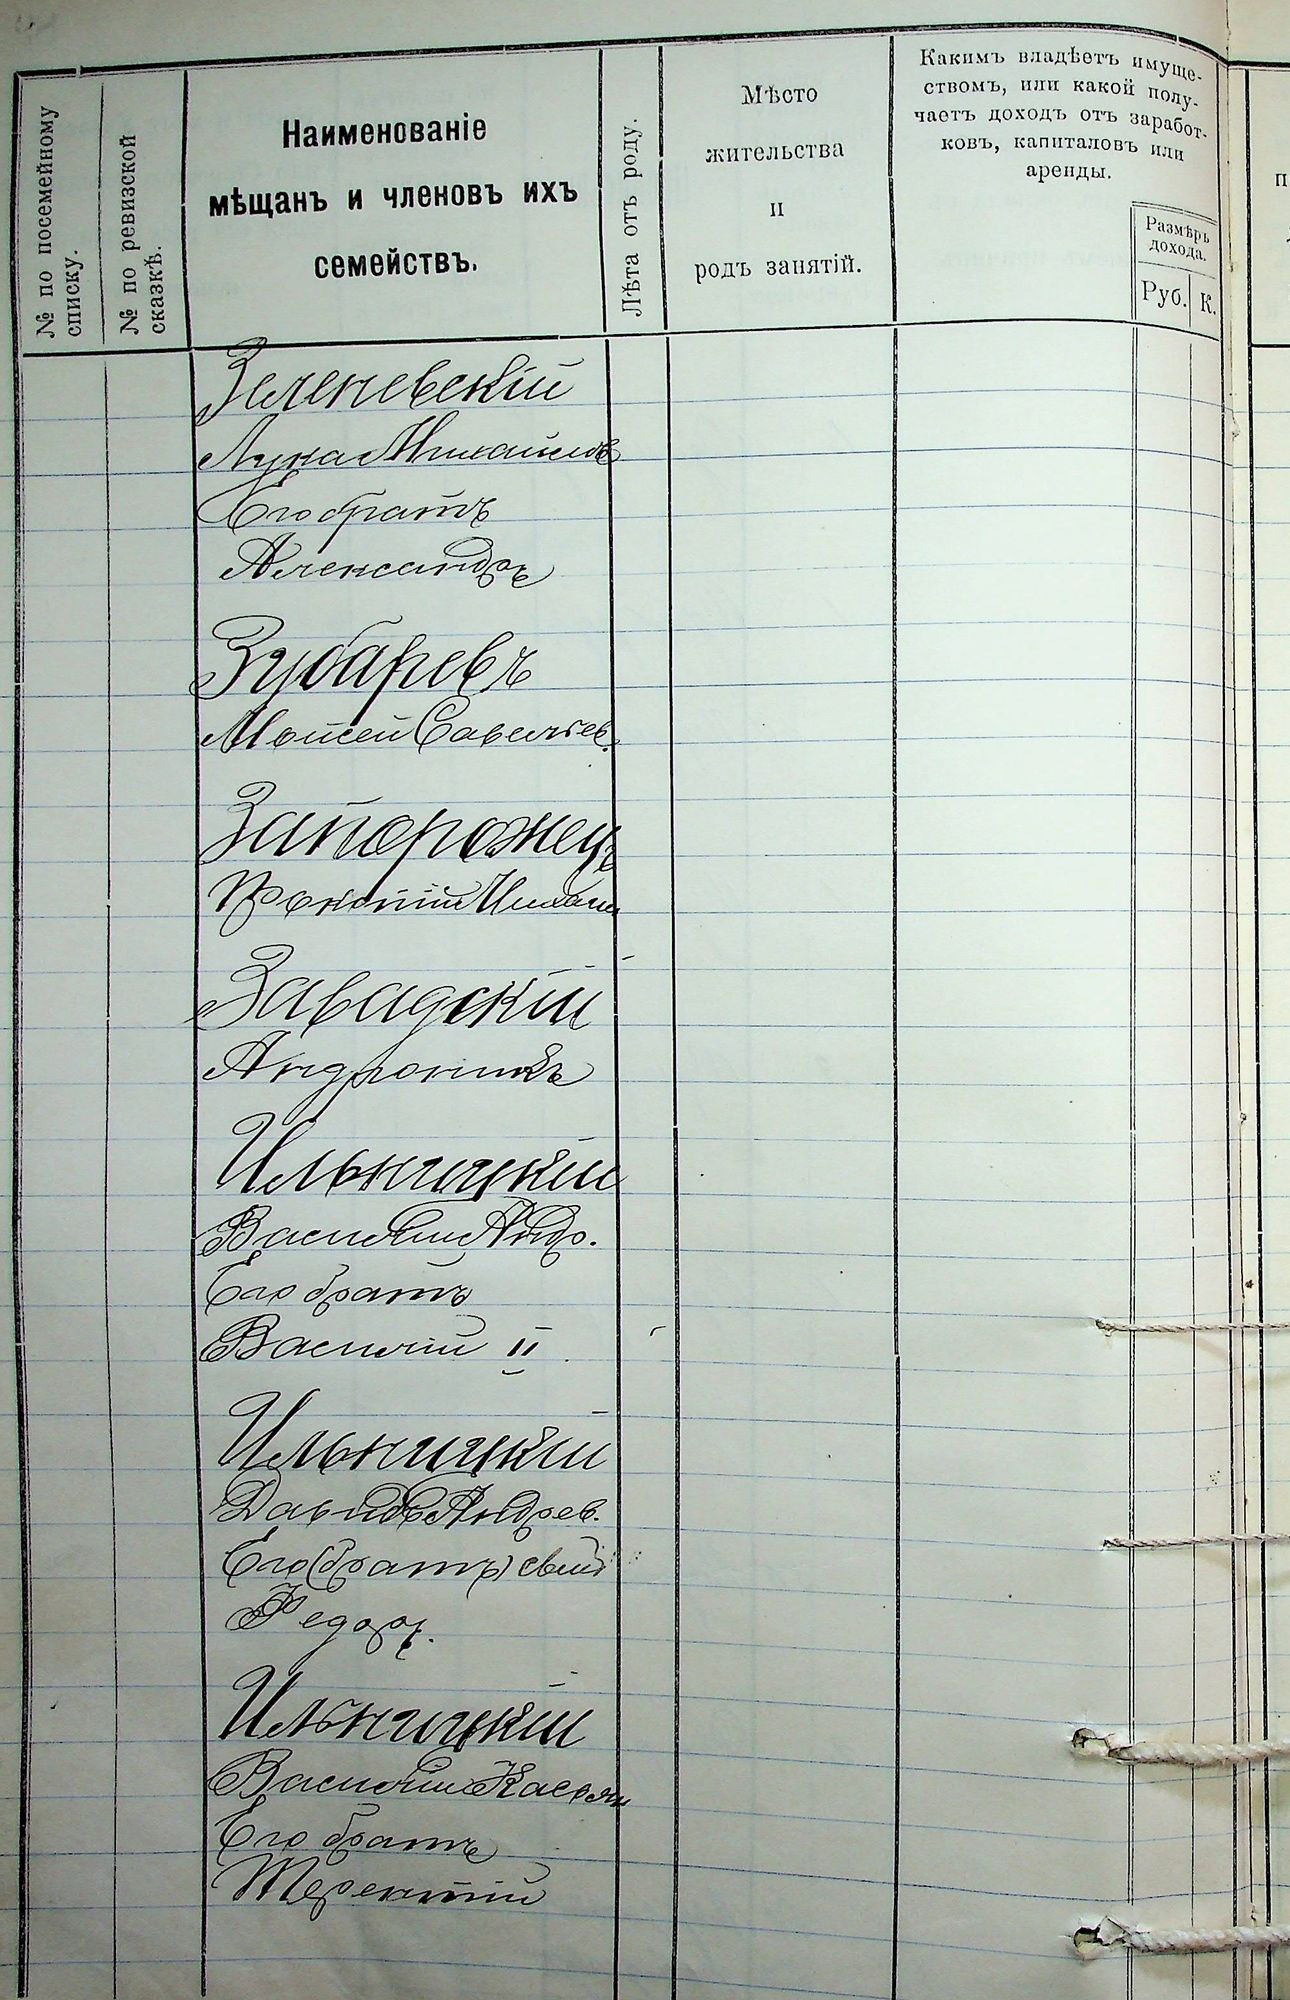 № по посемейному
списку.
№ по ревизской
сказкѣ.
Наименованіе
мѣщанъ и членовъ ихъ
семействъ.
Лѣта отъ роду.
Мѣсто
жительства
и
родъ занятій.
Какимъ владѣетъ имуще-
ствомъ, или какой полу-
чаетъ доходъ отъ заработ-
ковъ, капиталовъ или
аренды.
Размѣръ
дохода.
Руб. К.
Зеленевскій
Лука Михайловъ
Его братъ
Александръ
Зубаревъ
Мойсей Савельев.
Запорожецъ
Завадскій
Андроникъ
Ильницкій
Василій Андр.
Его братъ
Василій II
Ильницкій
Давидъ Андреев.
Его (братъ)
Федоръ.
Ильницкій
Василій Касьян
Его братъ
Терентій
п